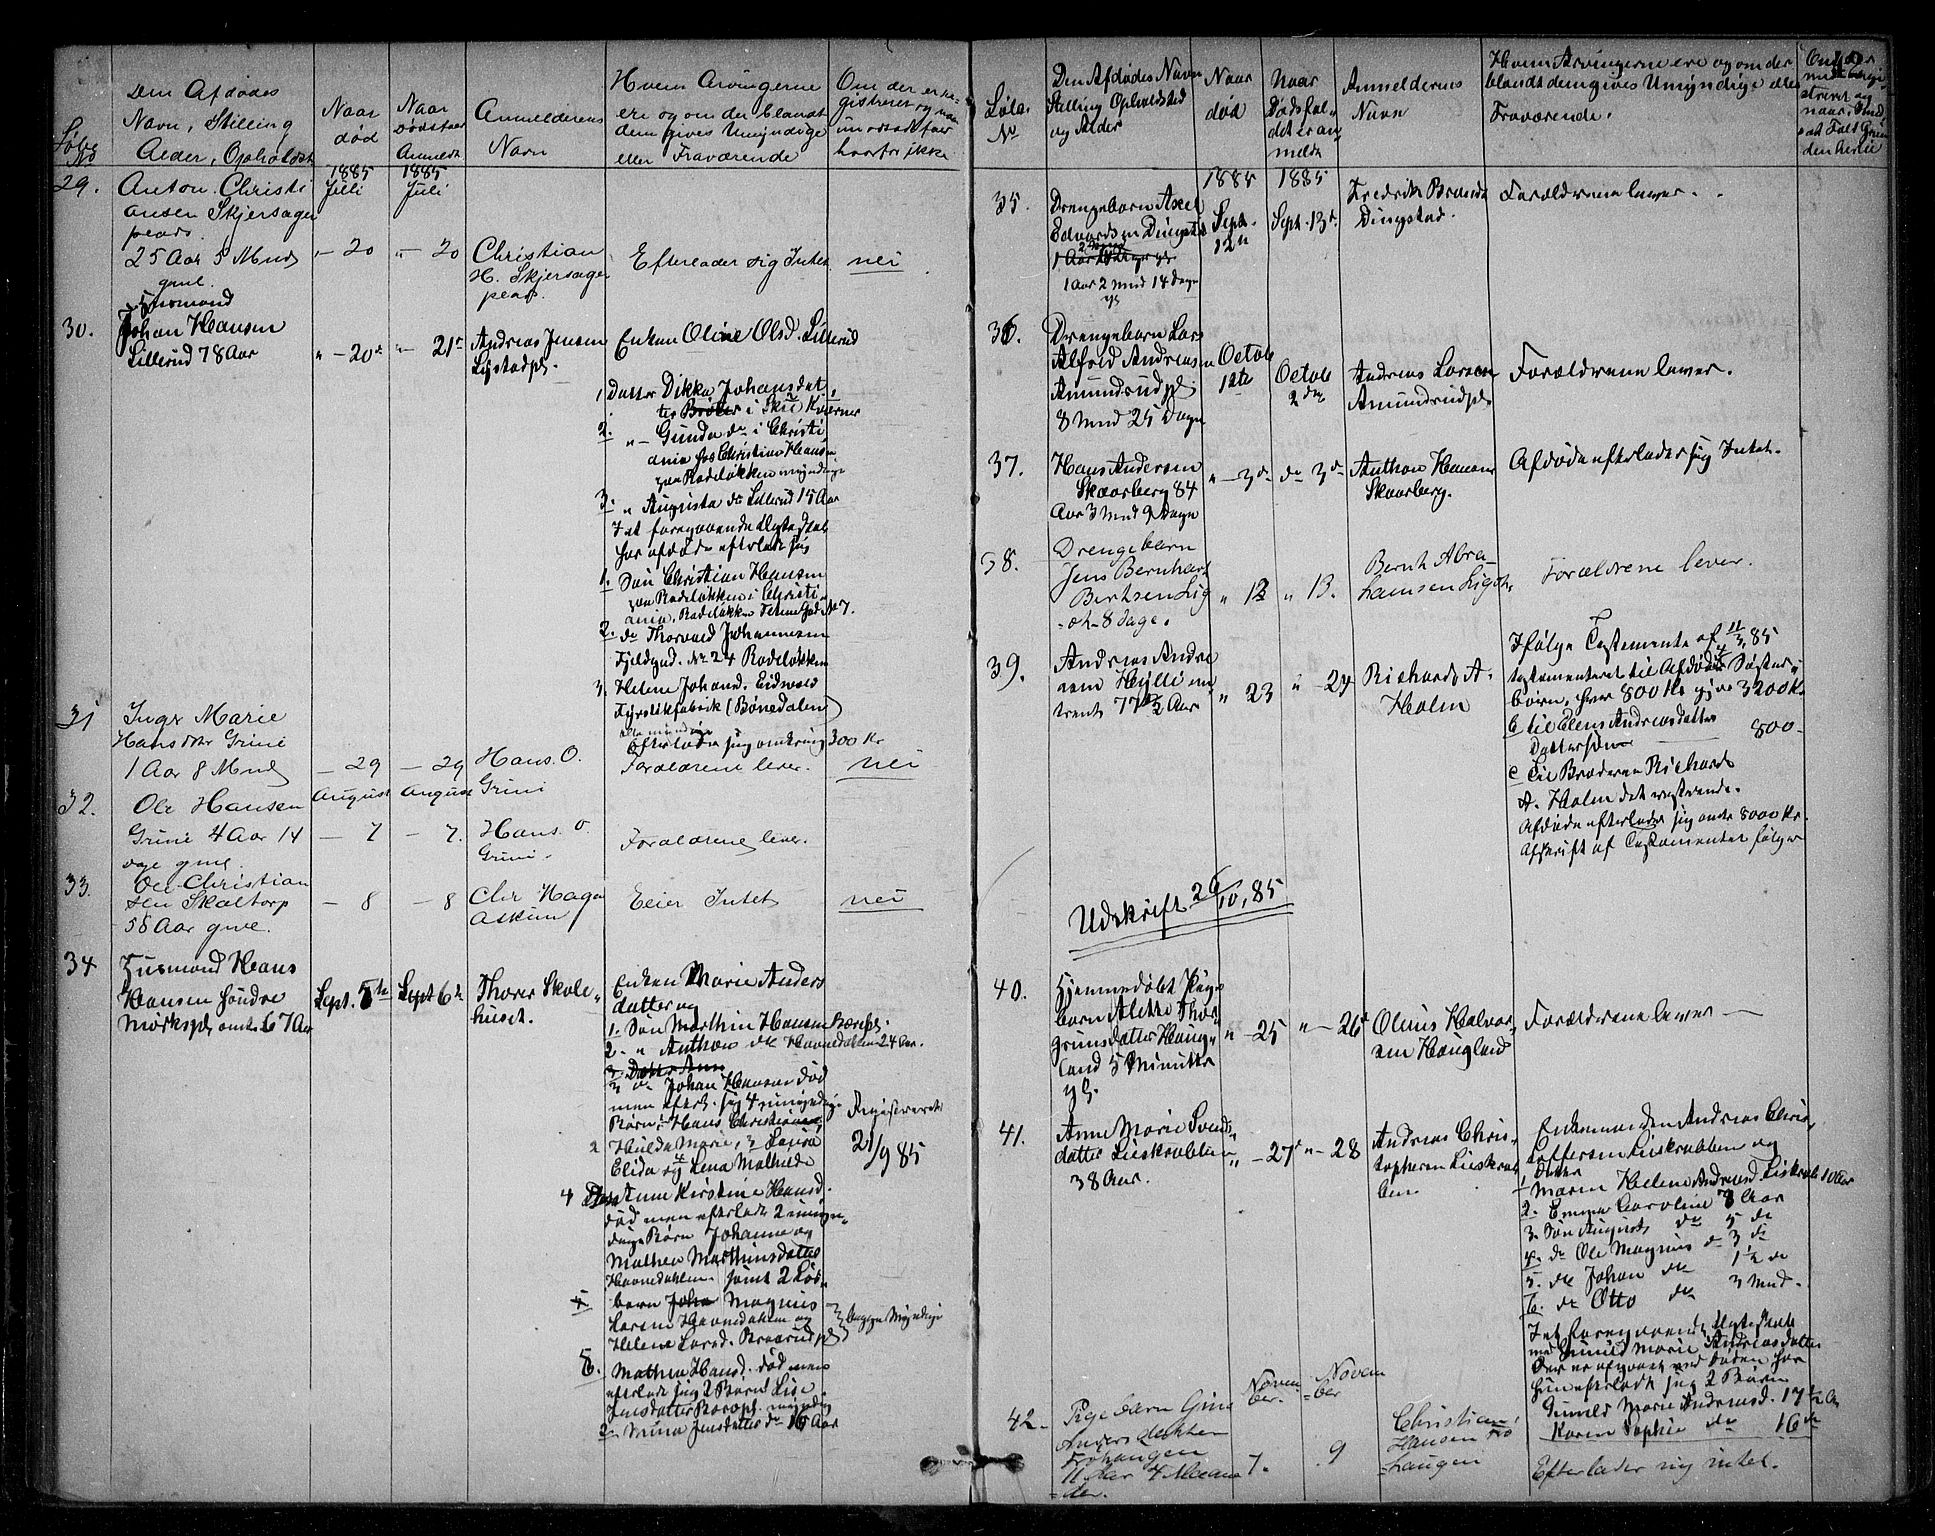 Den Afdødes
Navn, Stilling
Alder, Opholdst
Løbe No
Naar
død
Naar
Dødsfald
Anmeldt
Anmelderens
Navn
Hvem Arvingerne
ere og om der blandt
dem gives Umyndige
eller Fraværende
Om der er re-
gistreret og naar
hvorfor ikke
1885
Juli
1885
Juli
29.
Anton Christi
ansen Skjersager
25 Aar 5 Mnd
gml.
" - 20
" - 20
Christian
H. Skjersager
Efterlader sig Intet
nei
30.
Husmand
Johan Hansen
Lillerud 78 Aar
" - 20de
" - 21de
Andreas Jensen
Enken Oline Olsd. Lillerud
1 Datter Dikka Johansdat
ter Brøter i Skie Kværner
2. " - Gunda do i Christi
ania hos Christian Hansen
paa Rodeløkken myndige
3. " Augusta do Lillerud 15 Aar
I et foregaaende Ægteskab
har afdøde efterladt sig
1. Søn Christian Hansen
paa Rodeløkken i Christi
ania, Rodeløkken No 7.
2. do Thorvald Johannesen
Fjeldgad. No 24 Rodeløkken
3. Helene Johand. Eidsvold
Fyrstikfabrik (Bønedalen)
alle myndige
Efterlader sig omkring 300 Kr
31
Inger Marie
Hansdtr Grini
1 Aar 8 Mnd
- 29
- 29
Hans. O.
Grini
Forældrene lever.
nei
August
August
32.
Ole Hansen
Grini 4 Aar 14
dage gml.
- 7
- 7.
Hans. O.
Grini.
Forældrene lever.
33.
Ole Christian
sen Skaltorp
58 Aar gml.
- 8
- 8
Chr Haga
Askim
Eier Intet
nei
34
Husmand Hans
Hansen søndre
Mørkspl omtr. 67 Aar
Sept. 5te
Sept 6te
Thorer Skole-
huset.
Enken Marie Anders
datter og
1. Søn Marthin Hansen
2. " Anthon do Havnedalen 24 Aar.
3. Datter Ann
3 do Johan Hansen død
men efterl. sig 4 umyndige
Børn: 1 Hans Christian
2 Hulda Marie, 3 Laura
Elida og 4 Lena Mathilde
4 Anne Kirstine Hansd.
død men efterladt 2 umyn-
dige Børn Johanne og
Mathea Marthinsdatter
Havnedahlen. samt 2
børn Magnus
Larsen Havnedahlen og
Helene Larsd.
5. Mathea Hansd. død men
efterladt sig 2 Børn 1 Lise
Jensdatter myndig
2. Mina Jensdatter do 16 Aar
Registreret
21/9 85
Begge Myndige
Løbe
No
Den Afdødes Navn
Stilling Opholdssted
og Alder
Naar
død
Naar
Dødsfal-
det er an
meldt
Anmelderens
Navn
Hvem Arvingerne ere og om der
blandt dem gives Umyndige eller
Fraværende.
12
1885
1885
35.
Drengebarn Axel
Edvardsen Dingstad
1 Aar 2 Mnd 14 Dage
Sept.
12te
Sept. 13de
Fredrik Brands
Dingstad.
Forældrene lever.
36.
Drengebarn Lars
Alfred Andreasen
Amundrudpl
8 Mnd 25 Dage
Octob
1ste
Octob
2den
Andreas Larsen
Amundrudpl.
Forældrene lever.
37.
Hans Andersen
Skaarberg 84
Aar 3 Mnd 9 Dage
" - 3de
do 3de
Anthon Hansen
Skaarberg.
Afdøde efterlader sig Intet.
38.
Drengebarn
Jens Bernhard
Berntsen Lig
-oh- 8 dage.
" 12
" 13.
Bernh Abra-
hamsen Ligoh.
Forældrene lever.
39.
Andreas Andre
asen Hylli om
trent 77 1/2 Aar
" 23
" - 24
Richard A.
Holm
Ifølge Testamente af 11/3, 85
testamenteret til Afdødes 4 Søster-
børn, hver 800 Kr gjør 3200 Kr
b til Elens Andreasdatters
Dattersøn 800-
c Til Broderen Richard
A. Holm det resterende.
Afdøde efterlader sig omtr. 8000 Kr.
Afskrift af Testamentet følger
Udskrift 26/10, 85
40.
Hjemmedøbt Pige
barn Alette Thor
grimsdatter Haug-
land 5 Minutter
gl.
" - 25
" - 26de
Olaus Halvor-
sen Haugland
Forældrene lever -
41.
Anne Marie Svends
datter Lieskrabben
38 Aar.
" - 27de
" - 28
Andreas Chris-
tophersen Lieskrab
ben
Enkemanden Andreas Chris-
toffersen Lieskrabben og
Datter
1 Maren Helene Andreasd Lieskrab 10 Aar
2. Emma Caroline 7 Aar
3. Søn August do 5 do
4. do Ole Magnus do 3 do
5. do Johan do 1 1/2 do
6. do Otto do 3 Mnd.
I et foregaaende Ægteskab
med Gunild Marie Andreasdatter
der er afgaaet ved døden har
hun efterladt sig 2 Børn
Gunild Marie Andreasd. 17 1/2 Aar
Karen Sophie do 16 do
Novem
ber.
Novem
-ber
42.-
Pigebarn Gina
Andersdatter
Frohaugen
11 Aar 4 Maane
-der.
7.
9
Christian
Hansen Fro
-haugen
Efterlader sig intet.